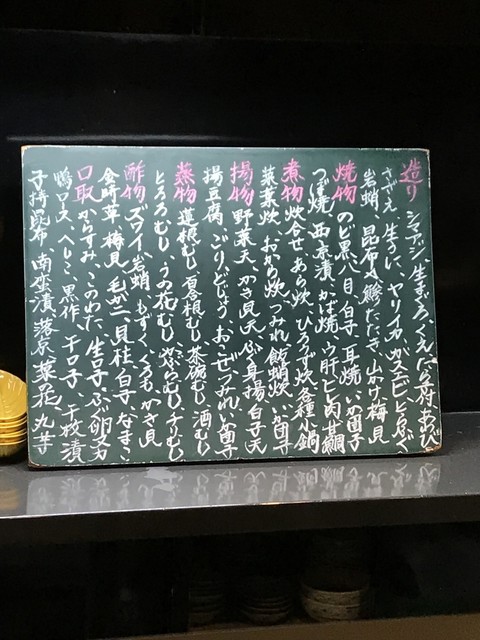 造り シマアジ、生まぐろ、くえ、
さざえ、生うに、ヤリイカ、ガスエビ、
岩蛸、昆布〆、鯵たたき、山かけ、梅貝
焼物 のど黒、八目、白子、耳焼、いか団子
つぼ焼、西京漬、かば焼、肝ピ、肉
煮物 炊合せ、あら炊、ひろず炊、各種小鍋
菜菜炊、おから炊、つみれ、飯蛸炊、いか団子
揚物 野菜天、かさ見天、ふぐ身揚、白子天
揚豆腐、ごりどじょう、おこぜ、つみれ、いか団子
蒸物 蓮根むし、百合根むし、茶碗むし、酒むし
とろろむし、うの花むし、かぶらむし、チリむし
酢物 ズワイ、岩蛸、もずく、くろも、かさ見
金時草、梅貝、毛がニ、貝柱、白子、なまこ
口取 からすみ、このわた、生口子、ふぐ卵ヌカ
鴨ロース、へしこ、黒作、干口子、千枚漬
子持昆布、南蛮漬、落京、菜花、丸芋